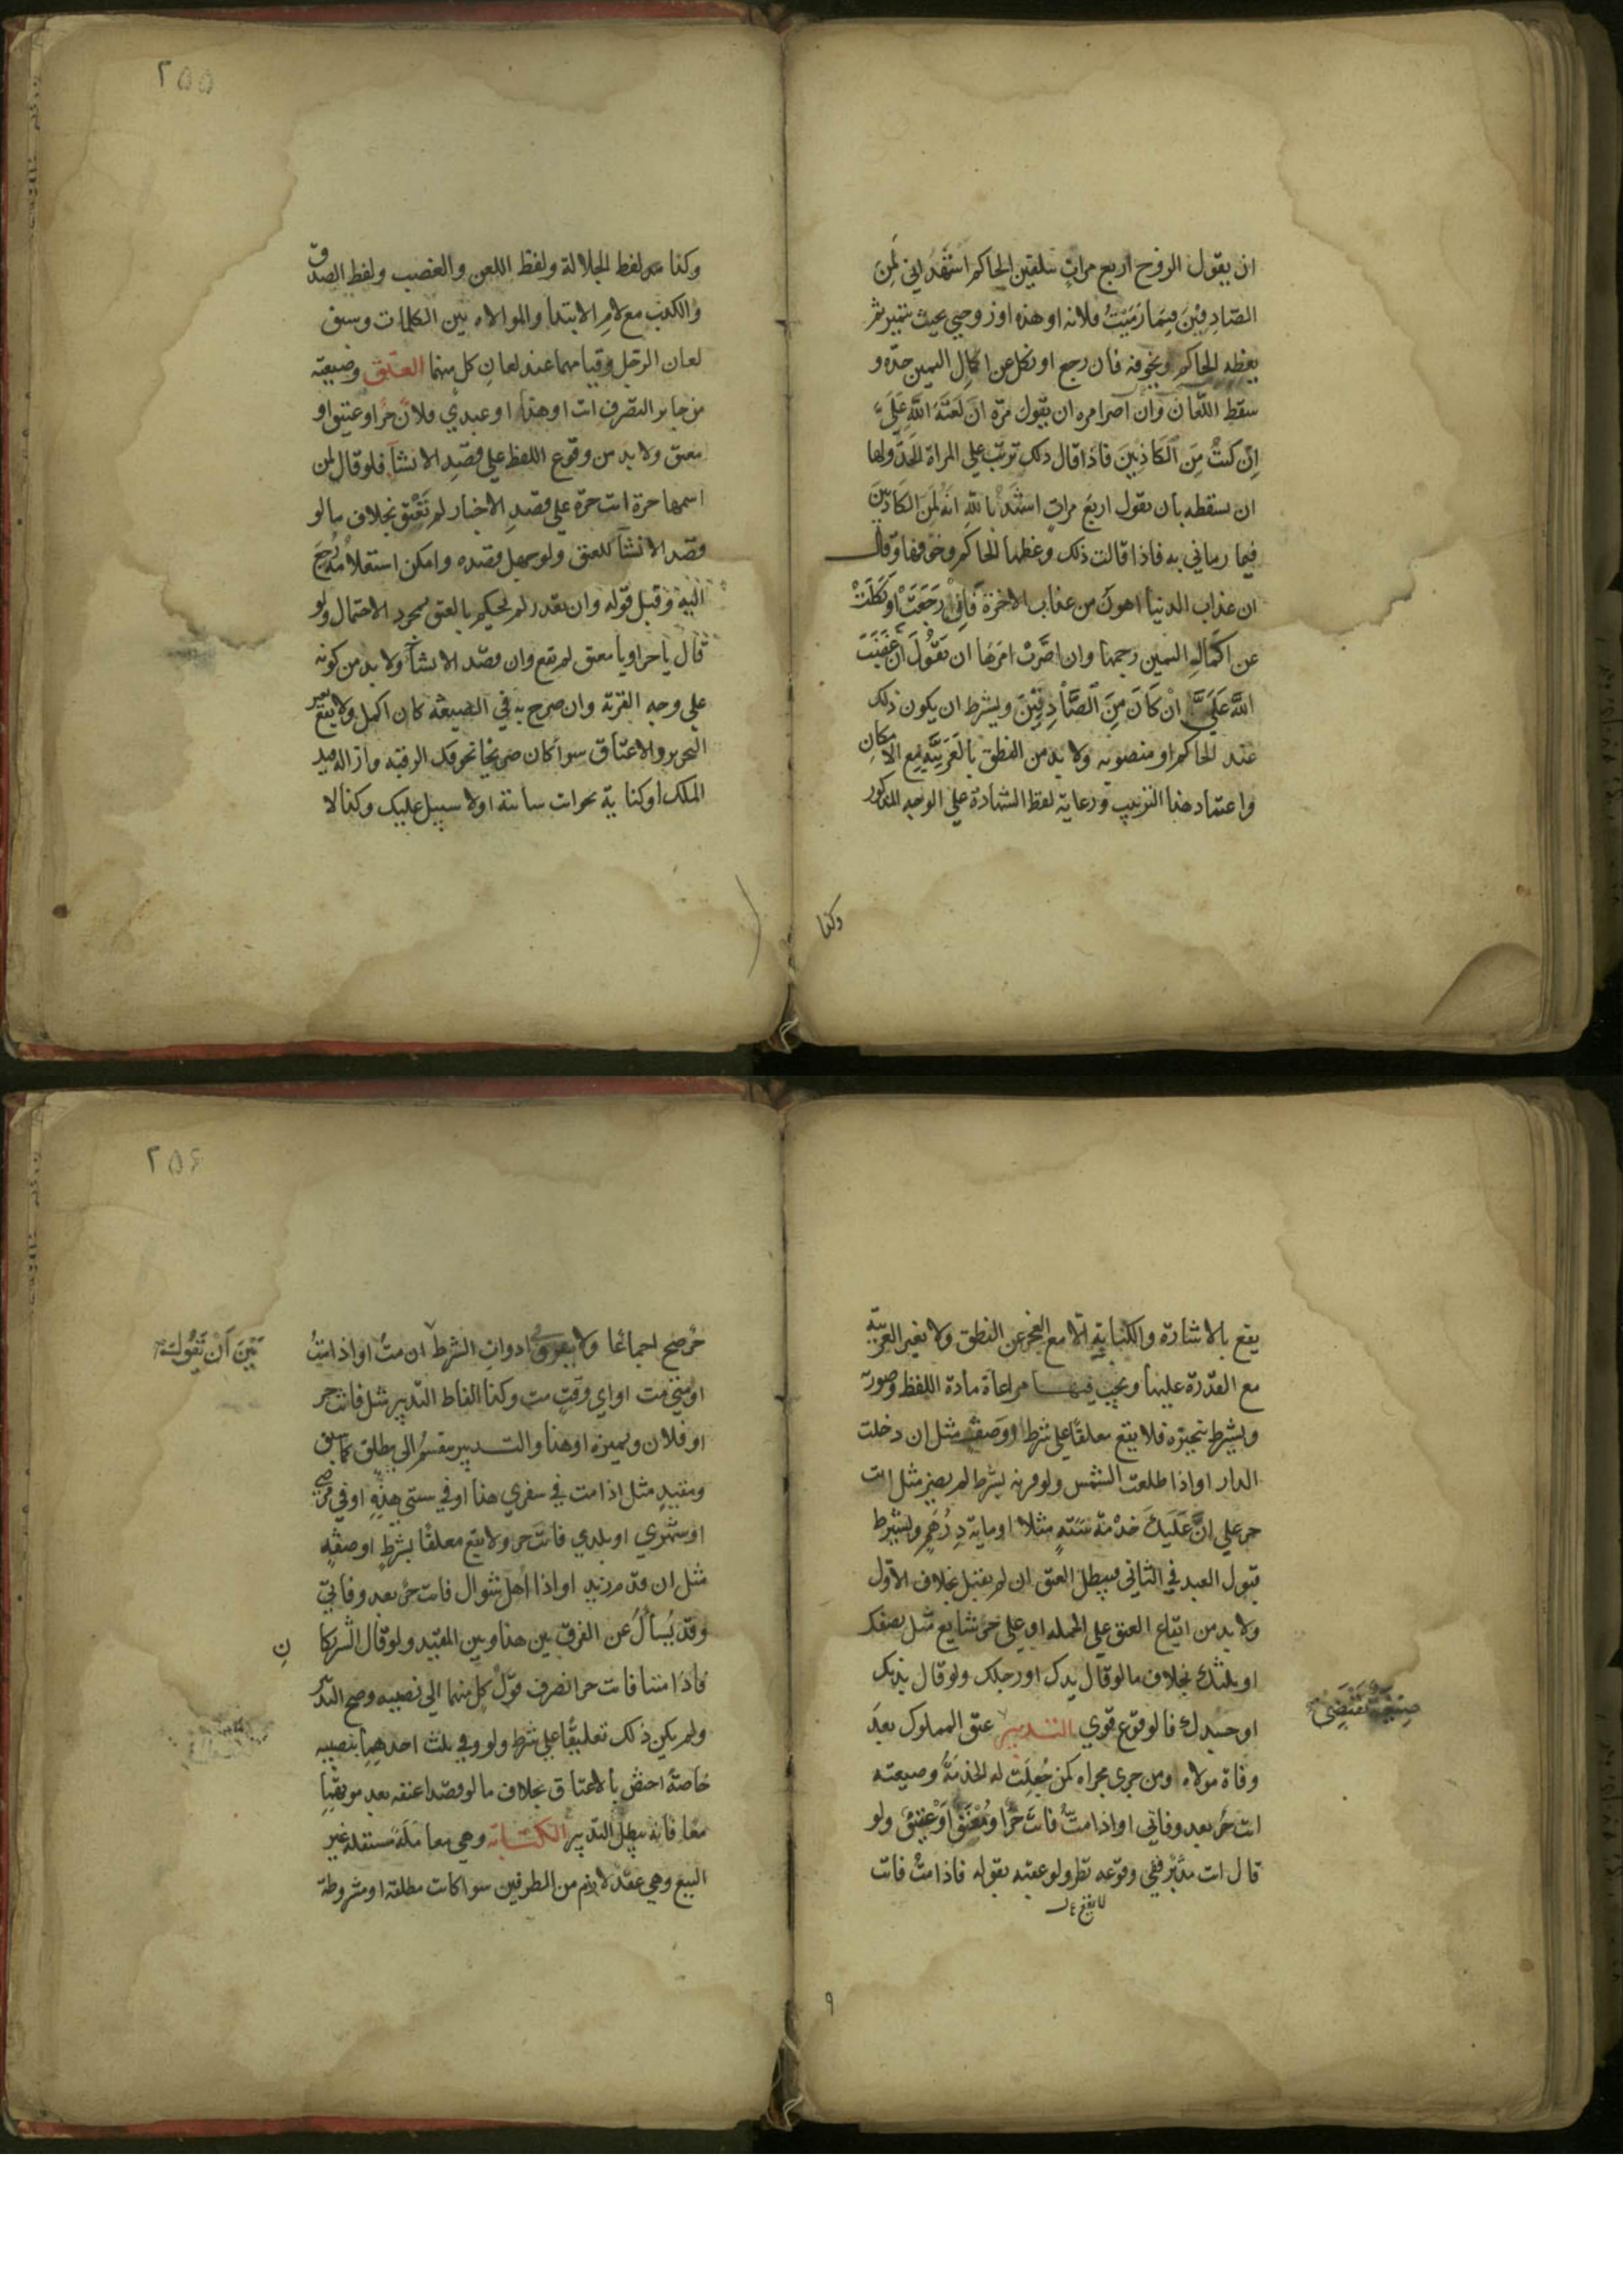 ان يقول الزوج اربع مرات بتلقين الحاكم اشهد اني لمن
الصادقين فيما رميت فلانه او هذه او زوجتي بحيث تتميز ثم
يعظه الحاكم ويخوفه فان رجع او نكل عن اكمال اليمين حده و
سقط اللعان وان اصر امره ان يقول مرة ان لعنة الله علي
ان كنت من الكاذبين فاذا قال ذلك ترتب علي المراة الحد ولها
ان تسقطه بان تقول اربع مرات اشهد بالله انه لمن الكاذبين
فيما رماني به فاذا قالت ذلك وعظها الحاكم وخوفها وقال
ان عذاب الدنيا اهون من عذاب الاخرة فان رجعت او نكلت
عن اكمال اليمين رجمها وان اصرت امرها ان تقول ان غضب
الله علي ان كان من الصادقين ويشرط ان يكون ذلك
عند الحاكم او منصوبه ولا بد من النطق بالعربية مع الامكان
واعتماد هذا الترتيب ورعاية لفظ الشهادة علي الوجه المذكور
وكذا
٢٥٥
وكذا لفظ الجلالة ولفظ اللعن والغضب ولفظ الصدق
والكذب مع لام الابتدا والموالاه بين الكلمات وسبق
لعان الرجل وقيامهما عند لعان كل منهما العتق وصيغته
من جايز التصرف انت او هذا او عبدي فلان حر او عتيق او
معتق ولا بد من وقوع اللفظ علي قصد الانشا فلو قال لمن
اسمها حرة انت حرة علي قصد الاخبار لم تعتق بخلاف ما لو
قصد الانشا للعتق ولو جهل قصده وامكن استعلامه رجع
اليه وقبل قوله وان تعذر لم يحكم بالعتق لمجرد الاحتمال ولو
قال يا حر او يا معتق لم يقع وان قصد الانشا ولا بد من كونه
علي وجه القربة وان صرح به في الصيغة كان اكمل ولا يقع بغير
التحرير والاعتاق سوا كان صريحا نحو فك الرقبة وازالة قيد
الملك او كناية نحو انت سائبة او لا سبيل عليك وكذا لا
يقع بالاشارة والكتابة الا مع العجز عن النطق ولا بغير العربية
مع القدرة عليها ويجب فيها مراعاة مادة اللفظ وصورته
ويشرط تنجيزه فلا يقع معلقا علي شرط او وصف مثل ان دخلت
الدار او اذا طلعت الشمس ولو قرنه بشرط لم يضر مثل انت
حر علي ان عليك خدمة سنة مثلا او ماية درهم ويشرط
قبول العبد في الثاني فيبطل العتق ان لم يقبل بخلاف الاول
ولا بد من ايقاع العتق علي الجمله او علي جزء شايع مثل نصفك
او ثلثك بخلاف ما لو قال يدك او رجلك ولو قال بدنك
او جسدك فالوقوع قوي التدبير عتق المملوك بعد
صيغة تقتضي
وفاة مولاه او من جرى مجراه كمن جعلت له الخدمة وصيغته
انت حر بعد وفاتي او اذا مت فانت حر او معتق او عتيق ولو
قال انت مدبر ففي وقوعه نظر ولو عقبه بقوله فاذا مت فانت
٢٥٦
حر صح اجماعا ولا يفرق في ادوات الشرط ان مت او اذا مت
بين ان تقول
او متي مت او اي وقت مت وكذا الفاظ التدبير مثل فانت حر
او فلان ويميزه او هذا والتدبير ينقسم الي مطلق كما سبق
ومقيد مثل اذا مت في سفري هذا او في سنتي هذه او في مرضي
او شهري او بلدي فانت حر ولا يقع معلقا بشرط او صفة
مثل ان قدم زيد او اذا اهل شوال فانت حر بعد وفاتي
وقد يسأل عن الفرق بين هذا وبين المقيد ولو قال الشريكان
فاذا متنا فانت حر انصرف قول كل منهما الي نصيبه وصح التدبير
ولم يكن ذلك تعليقا علي شرط ولو وفي ثلث احدهما بنصيبه
خاصة اختص بالاعتاق بخلاف ما لو قصدا عتقه بعد موتهما
معا فانه يبطل التدبير الكتابة وهي معاملة مستقلة غير
البيع وهي عقد لازم من الطرفين سوا كانت مطلقة او مشروطة